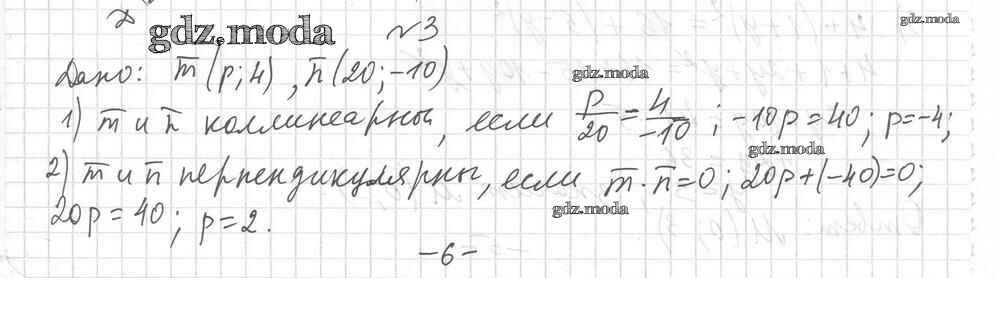 gdz.moda
№3
gdz.moda
Дано: m̅ (p; 4), n̅ (20; -10)
gdz.moda
1) m̅ и n̅ коллинеарны, если p/20 = 4/-10 ; -10p = 40; p = -4;
gdz.moda
2) m̅ и n̅ перпендикулярны, если m̅ · n̅ = 0; 20p + (-40) = 0;
gdz.moda
20p = 40; p = 2.
-6-